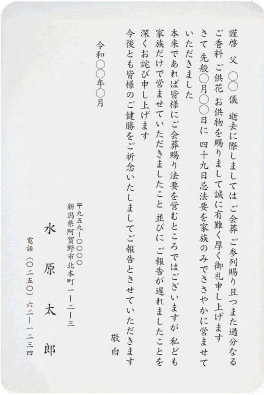 謹啓 父 〇〇 儀 逝去に際しましては ご会葬 ご参列賜り且つまた過分なる
ご香料 ご供花 お供物を賜りまして誠に有難く厚く御礼申し上げます
さて 先般〇月〇〇日に 四十九日忌法要を家族のみでささやかに営ませて
いただきました
本来であれば皆様にご会葬賜り法要を営むところではございますが 私ども
家族だけで営ませていただきましたこと 並びに ご報告が遅れましたことを
深くお詫び申し上げます
今後とも皆様のご健勝をご祈念いたしましてご報告とさせていただきます
敬白
令和〇〇年〇月
〒九五九−〇〇〇〇
新潟県阿賀野市北本町一−二−三
水原太郎
電話(〇二五〇)六二−一二三四